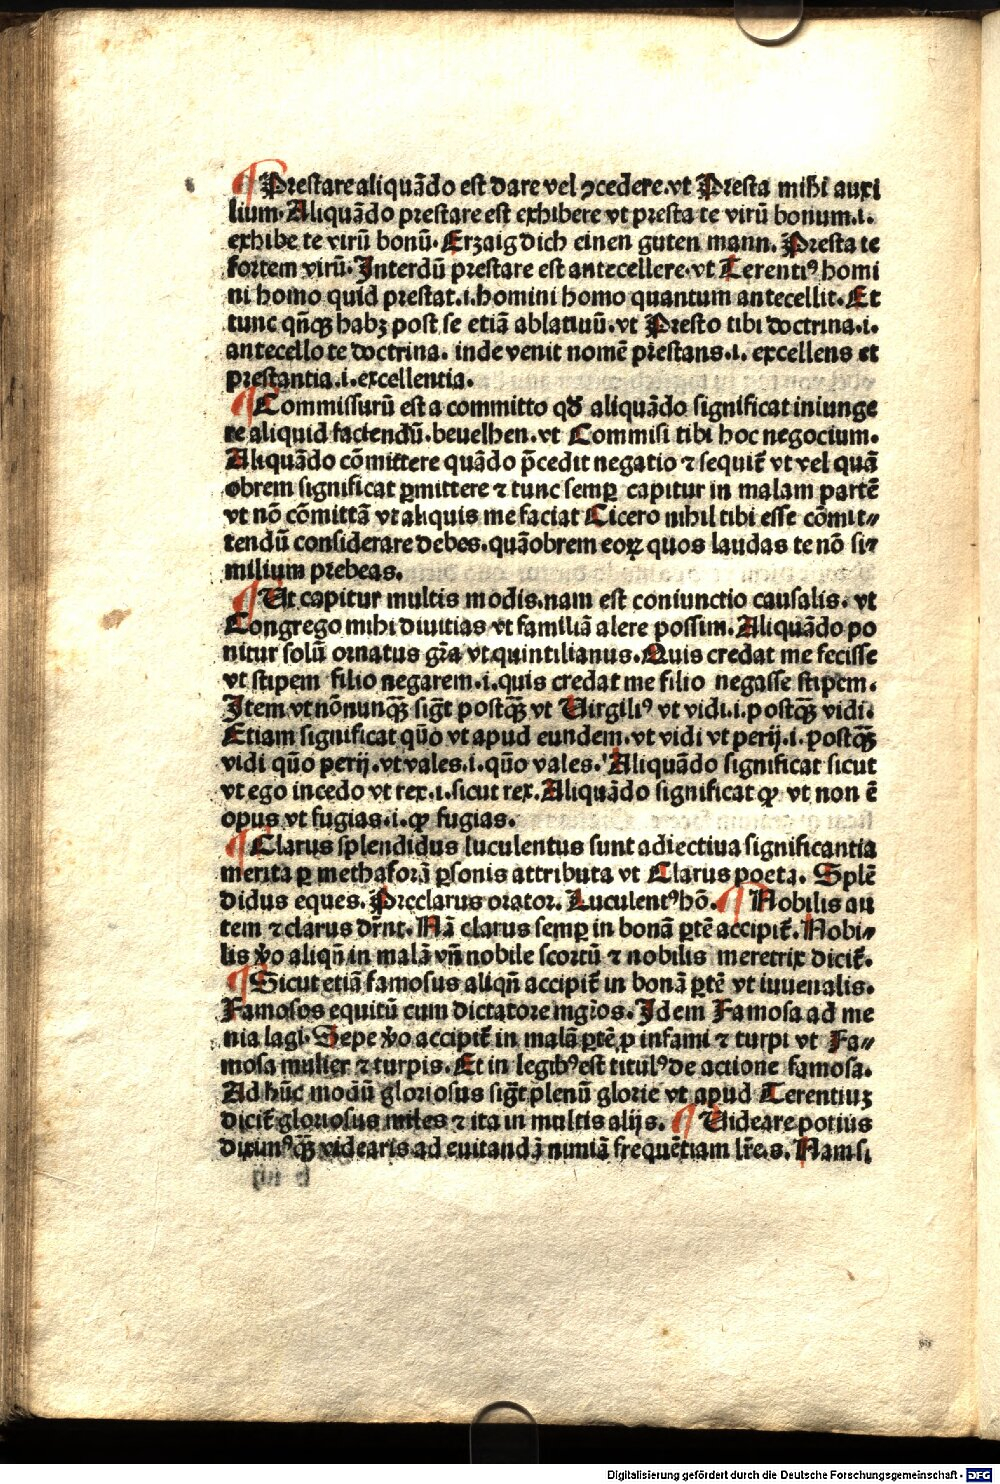 ¶ Prestare aliquādo est dare vel ꝯcedere.vt Presta mihi auxi
lium. Aliquādo prestare est exhibere vt presta te virū bonum.i.
exhibe te virū bonū. Erzaig dich einen guten mann. Presta te
fortem virū. Interdū prestare est antecellere.vt Terentiꝰ homi
ni homo quid prestat.i.homini homo quantum antecellit. Et
tunc qn̄qꝫ habꝫ post se etiā ablatiuū.vt Presto tibi doctrina.i.
antecello te doctrina. inde venit nomē prestans.i. excellens et
prestantia.i.excellentia.
¶ Commissurū est a committo qđ aliquādo significat iniunge
re aliquid faciendū.beuelhen.vt Commisi tibi hoc negocium.
Aliquādo cōmittere quādo p̄cedit negatio ⁊ sequit᷑ vt vel quā
obrem significat ꝑmittere ⁊ tunc semꝑ capitur in malam partē
vt nō cōmittā vt aliquis me faciat Cicero nihil tibi esse cōmit⸗
tendū considerare debes.quāobrem eoꝝ quos laudas te nō si⸗
milium prebeas.
¶ Ut capitur multis modis.nam est coniunctio causalis. vt
Congrego mihi diuitias vt familiā alere possim. Aliquādo po
nitur solū ornatus gr̄a vt quintilianus. Quis credat me fecisse
vt stipem filio negarem.i.quis credat me filio negasse stipem.
Item vt nōnunqꝫ sigt᷑ postqꝫ vt Virgiliꝰ vt vidi.i.postqꝫ vidi.
Etiam significat quō vt apud eundem.vt vidi vt perij.i.postqꝫ
vidi quō perij.vt vales.i.quō vales. Aliquādo significat sicut
vt ego incedo vt rex.i.sicut rex. Aliquādo significat ꝙ vt non ē
opus vt fugias.i.ꝙ fugias.
¶ Clarus splendidus luculentus sunt adiectiua significantia
merita ꝑ methaforā ꝑsonis attributa vt Clarus poeta. Splē
didus eques. Preclarus orator. Luculentꝰ hō. ¶ Nobilis au
tem ⁊ clarus dr̄nt. Nā clarus semꝑ in bonā ꝑtē accipit᷑. Nobi⸗
lis ꝟo aliqn̄ in malā vn̄ nobile scortū ⁊ nobilis meretrix dicit᷑.
¶ Sicut etiā famosus aliqn̄ accipit᷑ in bonā ꝑtē vt iuuenalis.
Famosos equitū cum dictatore mgr̄os. Idem Famosa ad me
nia lagi. Sepe ꝟo accipit᷑ in malā ꝑtē ꝓ infami ⁊ turpi vt Fa⸗
mosa mulier ⁊ turpis. Et in legibꝰ est titulꝰ de actione famosa.
Ad hūc modū gloriosus sigt᷑ plenū glorie vt apud Terentiuꝫ
dicit᷑ gloriosus miles ⁊ ita in multis alijs. ¶ Videare potius
diximꝰ qꝫ videaris ad euitandā nimiā frequētiam lr̄e.s. Nam si
Digitalisierung gefördert durch die Deutsche Forschungsgemeinschaft - DFG